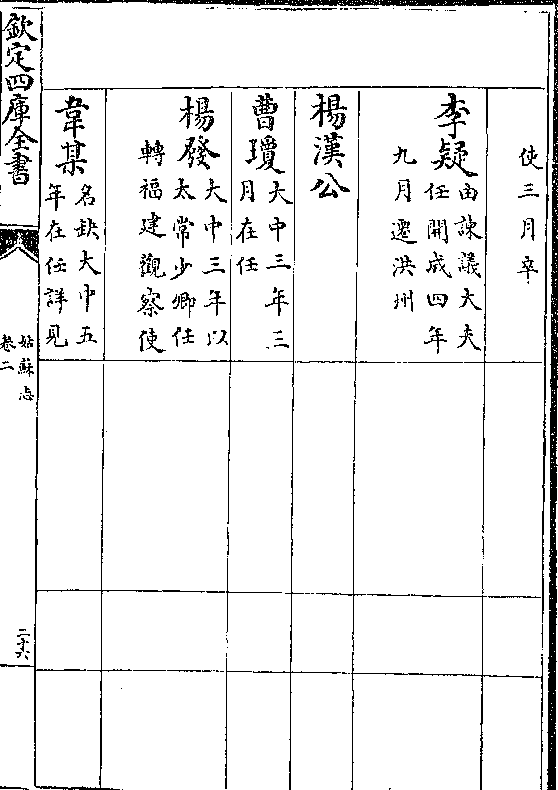 使三月卒
李疑
由諫議大夫
任開成四年
九月遷洪州
楊漢公
曹瓊
大中三年三
月在任
楊發
大中三年以
太常少卿任
轉福建觀察使
韋某
名缺大中五
年在任詳見
欽定四庫全書
姑蘇志
卷二
二十六